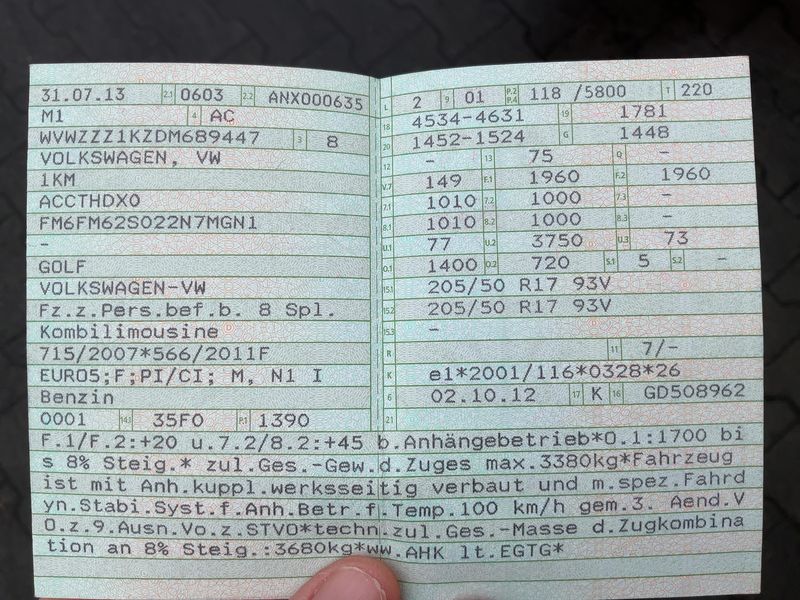 31.07.13 2.1 0603 2.2 ANX000635
M1 4 AC
WVWZZZ1KZDM689447 3 8
VOLKSWAGEN, VW
1KM
ACCTHDX0
FM6FM62S022N7MGN1
-
GOLF
VOLKSWAGEN-VW
Fz.z.Pers.bef.b. 8 Spl.
Kombilimousine
715/2007*566/2011F
EURO5;F;PI/CI; M, N1 I
Benzin
0001 14.1 35F0 P.1 1390
L 2 9 01 P.2 P.4 118 /5800 T 220
18 4534-4631 19 1781
20 1452-1524 G 1448
12 - 13 75 Q -
V.7 149 F.1 1960 F.2 1960
7.1 1010 7.2 1000 7.3 -
8.1 1010 8.2 1000 8.3 -
U.1 77 U.2 3750 U.3 73
O.1 1400 O.2 720 S.1 5 S.2 -
15.1 205/50 R17 93V
15.2 205/50 R17 93V
15.3 -
R 11 7/-
K e1*2001/116*0328*26
6 02.10.12 17 K 16 GD508962
21
F.1/F.2:+20 u.7.2/8.2:+45 b.Anhängebetrieb*O.1:1700 bi
s 8% Steig.* zul.Ges.-Gew.d.Zuges max.3380kg*Fahrzeug
ist mit Anh.kuppl.werksseitig verbaut und m.spez.Fahrd
yn.Stabi.Syst.f.Anh.Betr.f.Temp.100 km/h gem.3. Aend.V
O.z.9.Ausn.Vo.z.STVO*techn.zul.Ges.-Masse d.Zugkombina
tion an 8% Steig.:3680kg*ww.AHK lt.EGTG*